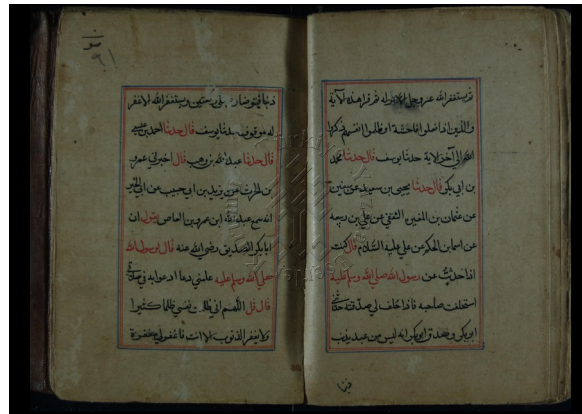 ثم يستغفر الله عز وجل الا غفر له ثم قرا هذه الاية
والذين اذا فعلوا فاحشة او ظلموا انفسهم ذكروا
الله الى آخر الاية حدثنا يوسف قال حدثنا محمد
بن ابي بكر قال حدثنا يحيى بن سعيد عن
عن عثمان بن المغيرة الثقفي عن علي بن ربيعة
عن اسما بن الحكم عن علي عليه السلام قال كنت
اذا حدثت عن رسول الله صلى الله وسلم عليه
استحلفت صاحبه فاذا حلف لي صدقته حدثني
ابو بكر وصدق ابو بكر انه ليس من عبد يذنب
ذنبا
ذنبا فيتوضا ركعتين ويستغفر الله الا غفر
له موقوف حدثنا يوسف قال حدثنا احمد بن عيسى
قال حدثنا عبد الله بن وهب قال اخبرني عمرو
بن الحرث عن يزيد بن ابي حبيب عن ابي الخير
انه سمع عبد الله ابن عمرو بن العاص يقول ان
ابا بكر الصديق رضي الله عنه قال لرسول الله
صلى الله وسلم عليه علمني دعا ادعوا به في صلاتي
قال قل اللهم اني ظلمت نفسي ظلما كثيرا
ولا يغفر الذنوب الا انت فاغفر لي مغفرة